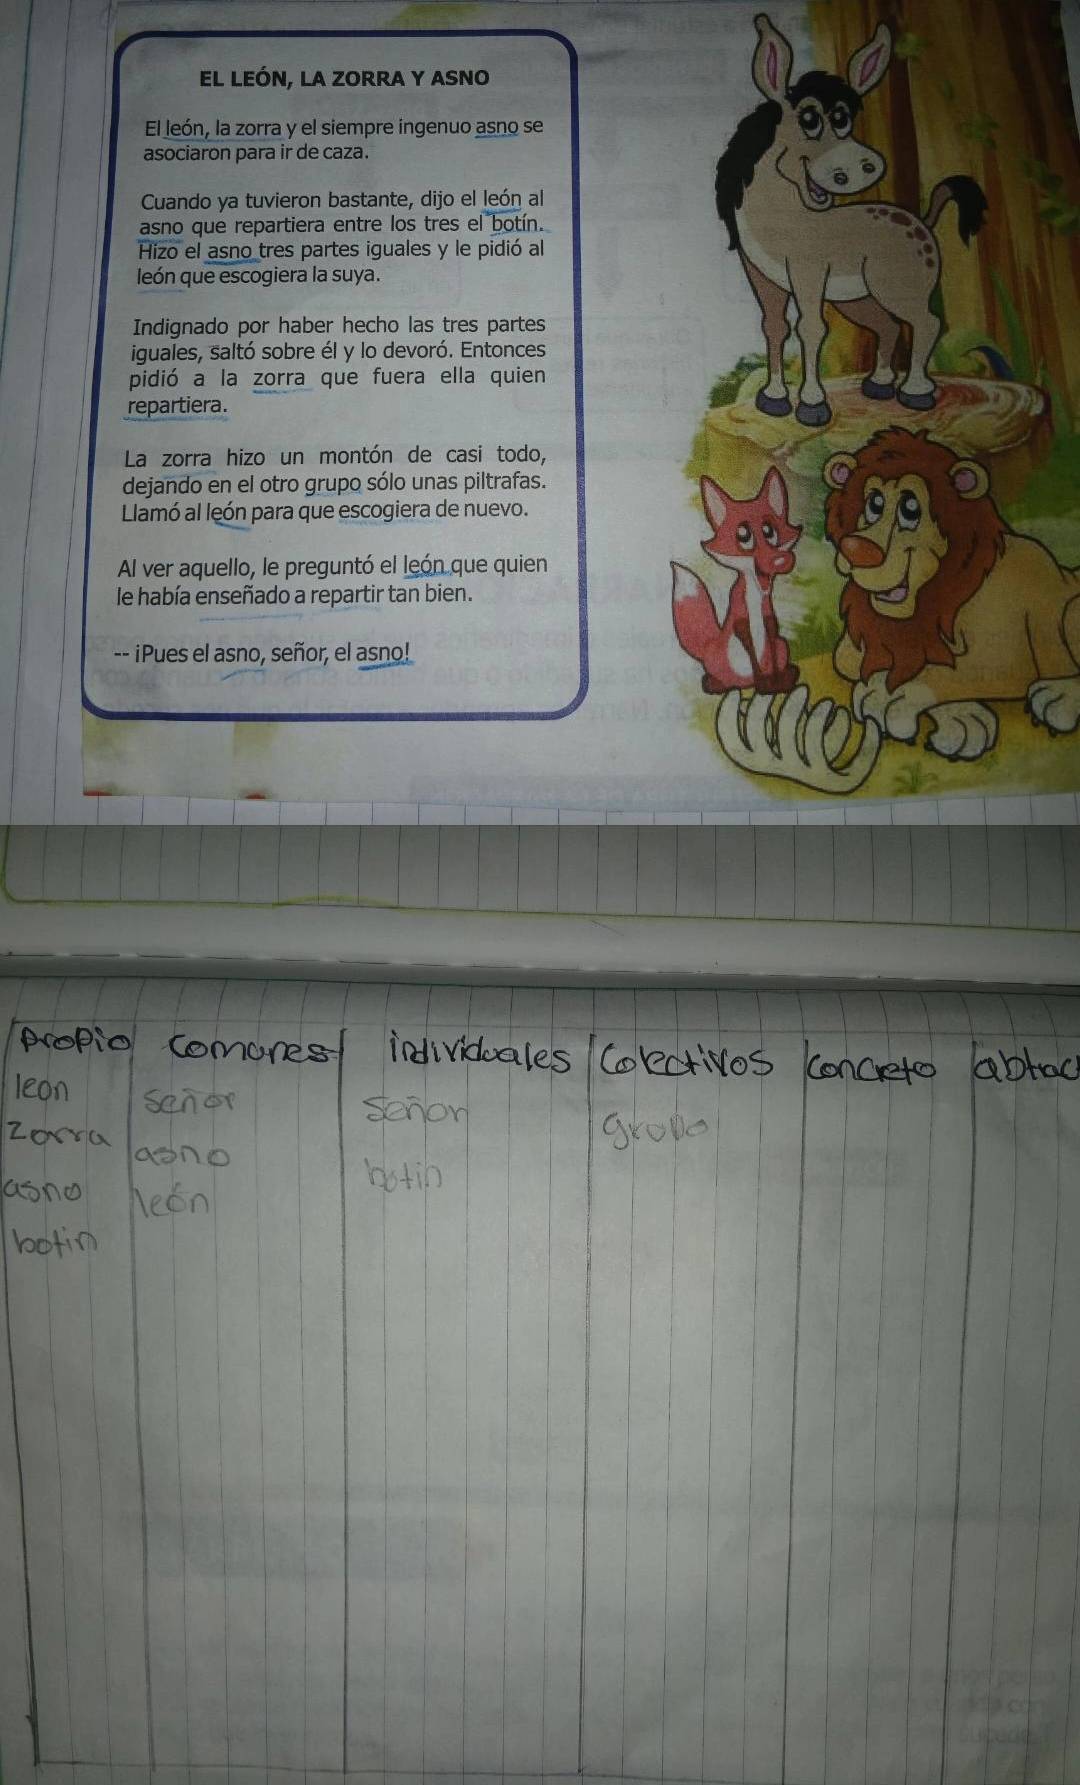 EL LEÓN, LA ZORRA Y ASNO
El león, la zorra y el siempre ingenuo asno se
asociaron para ir de caza.
Cuando ya tuvieron bastante, dijo el león al
asno que repartiera entre los tres el botín.
Hizo el asno tres partes iguales y le pidió al
león que escogiera la suya.
Indignado por haber hecho las tres partes
iguales, saltó sobre él y lo devoró. Entonces
pidió a la zorra que fuera ella quien
repartiera.
La zorra hizo un montón de casi todo,
dejando en el otro grupo sólo unas piltrafas.
Llamó al león para que escogiera de nuevo.
Al ver aquello, le preguntó el león que quien
le había enseñado a repartir tan bien.
-- ¡Pues el asno, señor, el asno!
Propio comunes individuales Colectivos Concreto abtrac
leon señor señor grupo
Zorra asno botin
asno león
botin